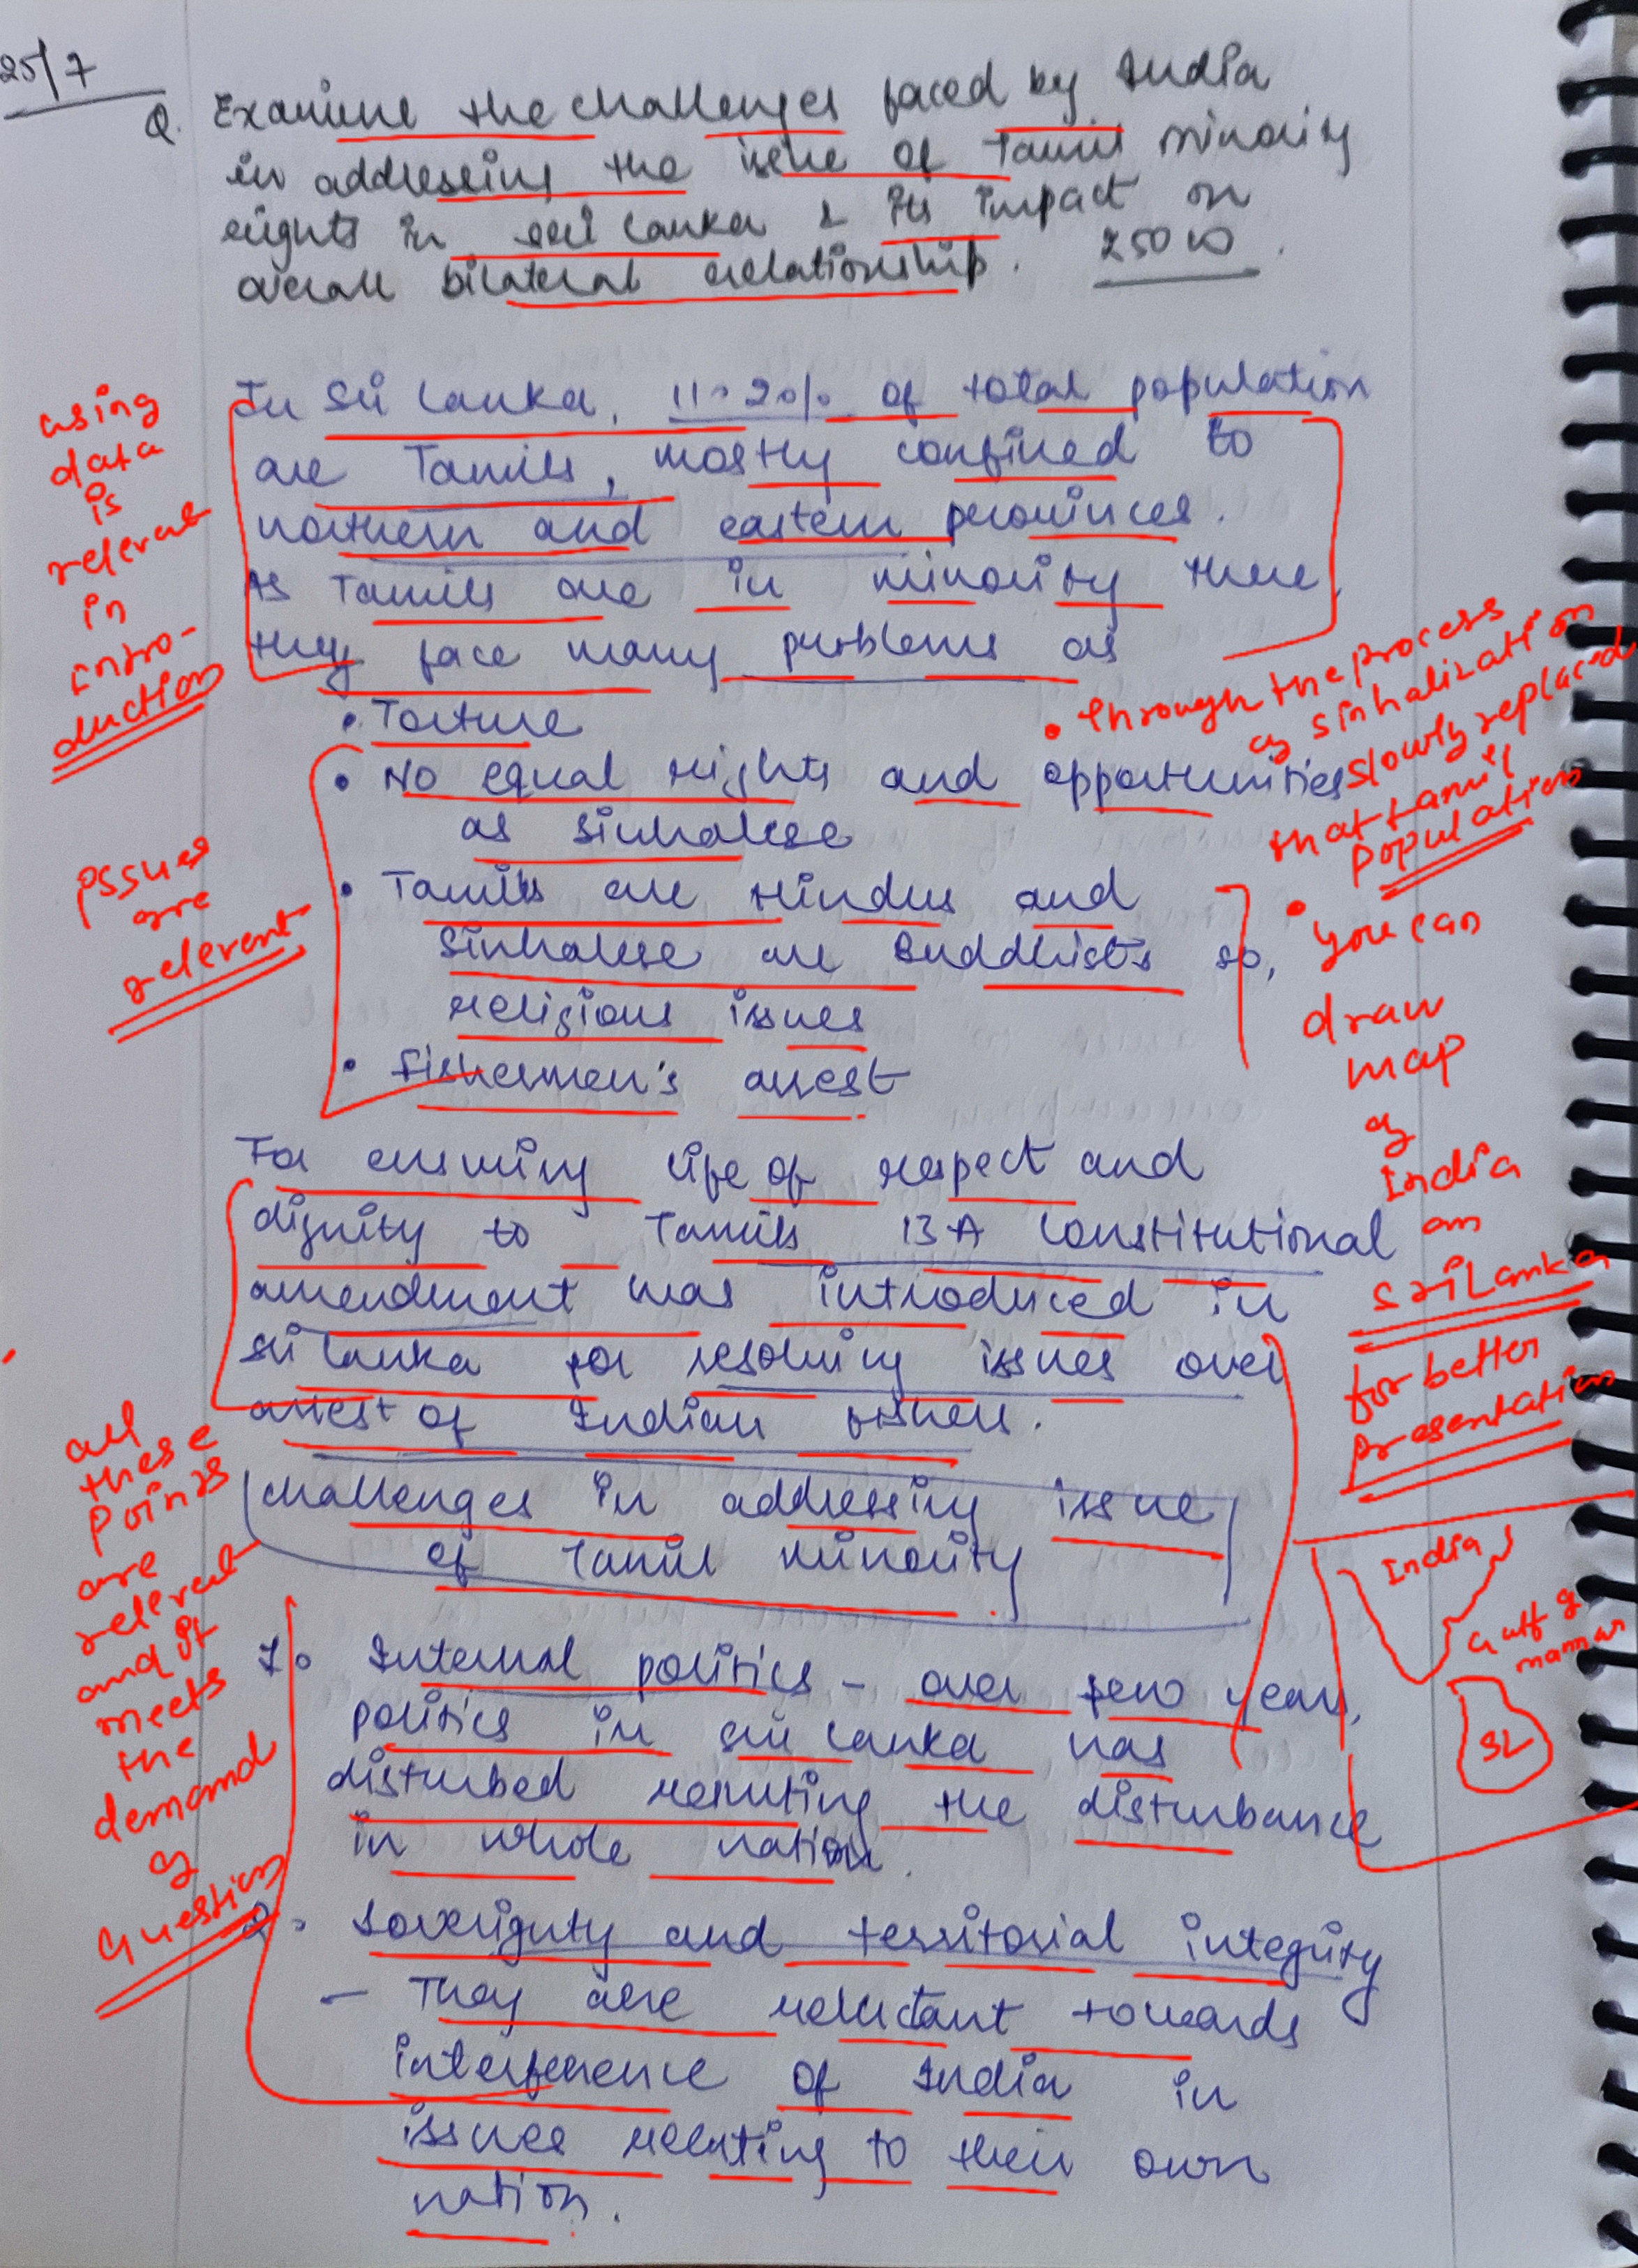 25/7
Q. Examine the challenges faced by India
in addressing the issue of Tamil minority
rights in sri lanka & its impact on
overall bilateral relationship. 250 W.
In Sri Lanka, 11.20% of total population
are Tamils, mostly confined to
northern and eastern provinces.
As Tamils are in minority there,
they face many problems as
• Torture
• No equal rights and opportunities
as sinhalese
• Tamils are Hindus and
Sinhalese are Buddhists so,
religious issues
• Fishermen's arrest
For ensuring life of respect and
dignity to Tamils 13 A Constitutional
amendment was introduced in
Sri Lanka for resolving issues over
arrest of Indian fishers.
Challenges in addressing issue
of Tamil minority
1. Internal politics - over few years,
politics in sri lanka has
disturbed resulting the disturbance
in whole nation.
2. Soverignty and territorial integrity
- They are reluctant towards
interference of India in
issues relating to their own
nation.
using
data
is
relevant
in
intro-
duction
Issues
are
relevent
all
these
points
are
relevent
and it
meets
the
demand
of
Question
• through the process
of sinhalization
slowly replaced
that tamil
population
• you can
draw
map
of
India
an
srilanka
for better
presentation
India
Gulf of
mannar
SL